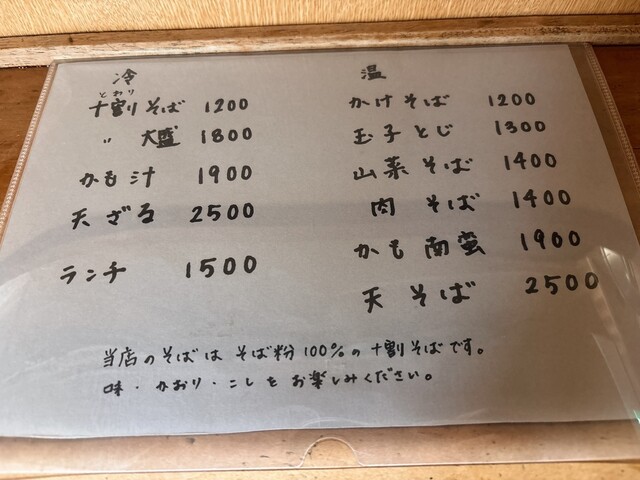 冷
とおり
十割りそば 1200
〃 大盛 1800
かも汁 1900
天ざる 2500
ランチ 1500
温
かけそば 1200
玉子とじ 1300
山菜そば 1400
肉そば 1400
かも南蛮 1900
天そば 2500
当店のそばはそば粉100%の十割りそばです。
味・かおり・こしをお楽しみください。